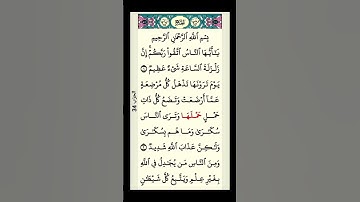 بِسْمِ ٱللَّهِ ٱلرَّحْمَٰنِ ٱلرَّحِيمِ
يَٰٓأَيُّهَا ٱلنَّاسُ ٱتَّقُوا۟ رَبَّكُمْ ۚ إِنَّ
زَلْزَلَةَ ٱلسَّاعَةِ شَىْءٌ عَظِيمٌ ۝١
يَوْمَ تَرَوْنَهَا تَذْهَلُ كُلُّ مُرْضِعَةٍ
عَمَّآ أَرْضَعَتْ وَتَضَعُ كُلُّ ذَاتِ
حَمْلٍ حَمْلَهَا وَتَرَى ٱلنَّاسَ
سُكَٰرَىٰ وَمَا هُم بِسُكَٰرَىٰ
وَلَٰكِنَّ عَذَابَ ٱللَّهِ شَدِيدٌ ۝٢
وَمِنَ ٱلنَّاسِ مَن يُجَٰدِلُ فِى ٱللَّهِ
بِغَيْرِ عِلْمٍ وَيَتَّبِعُ كُلَّ شَيْطَٰنٍ